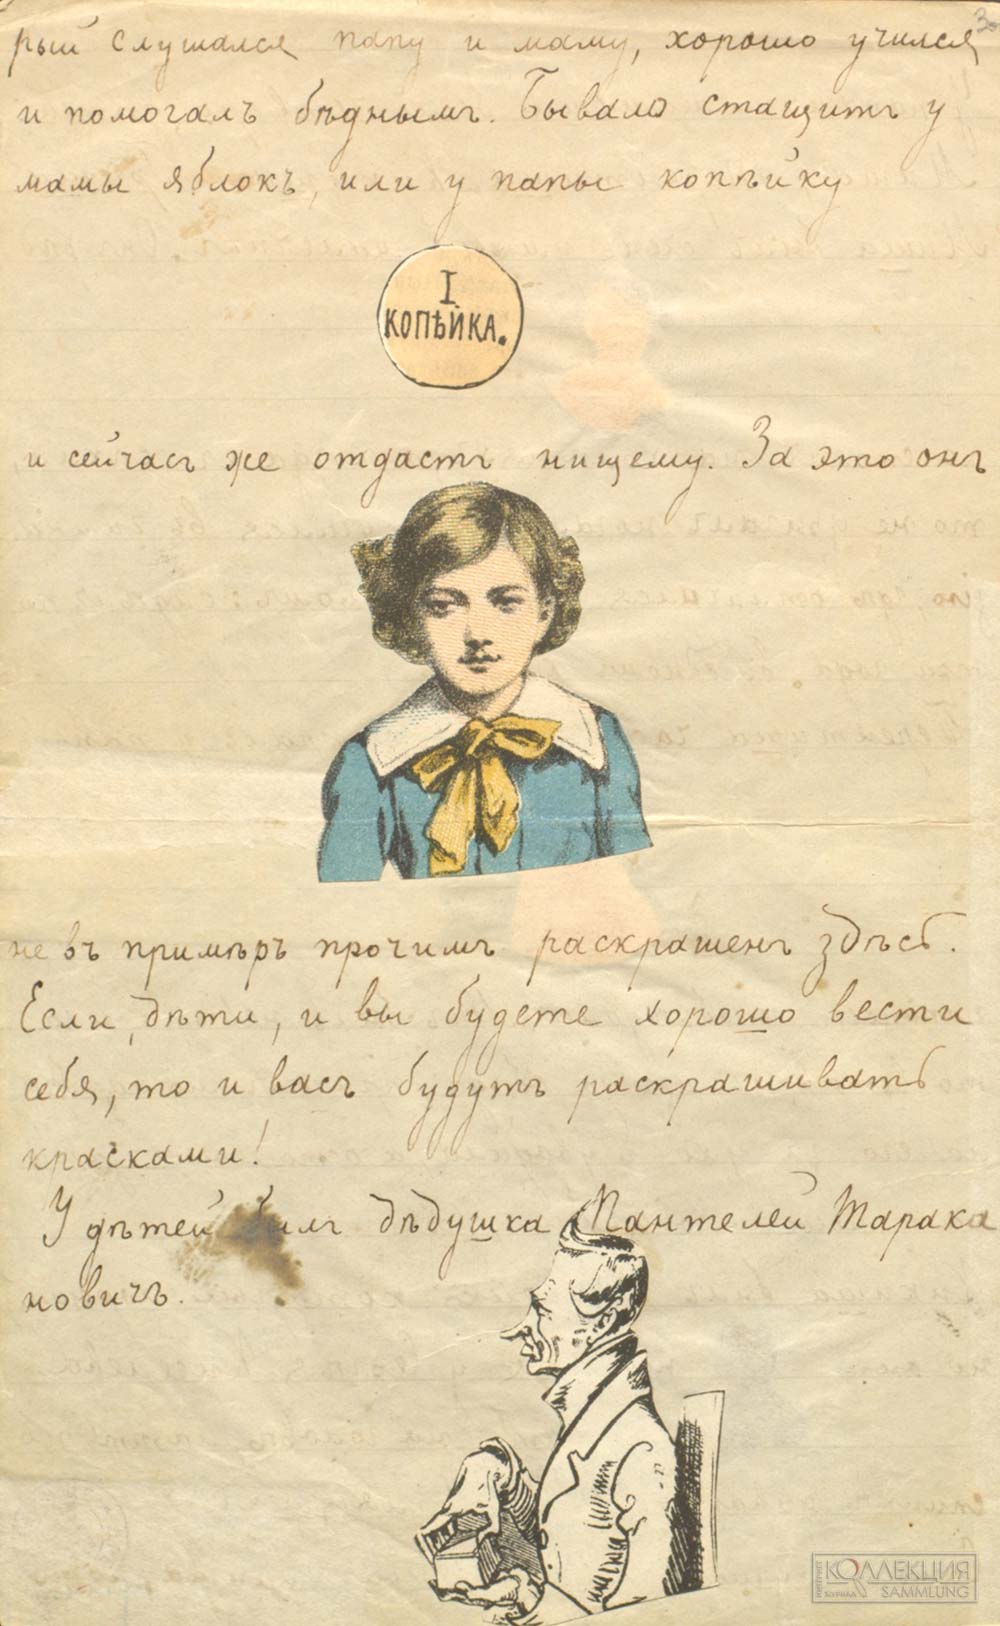 3
рый слушался папу и маму, хорошо учился
и помогалъ бѣднымъ. Бывало стащитъ у
мамы яблокъ, или у папы копѣйку
I
КОПѢЙКА.
и сейчасъ же отдастъ нищему. За это онъ
не въ примѣръ прочимъ раскрашенъ здѣсь.
Если, дѣти, и вы будете хорошо вести
себя, то и васъ будутъ раскрашивать
красками!
У дѣтей былъ дѣдушка Пантелей Тарака
новичъ.
ИНТЕРНЕТ ЖУРНАЛ КОЛЛЕКЦИЯ
SAMMLUNG